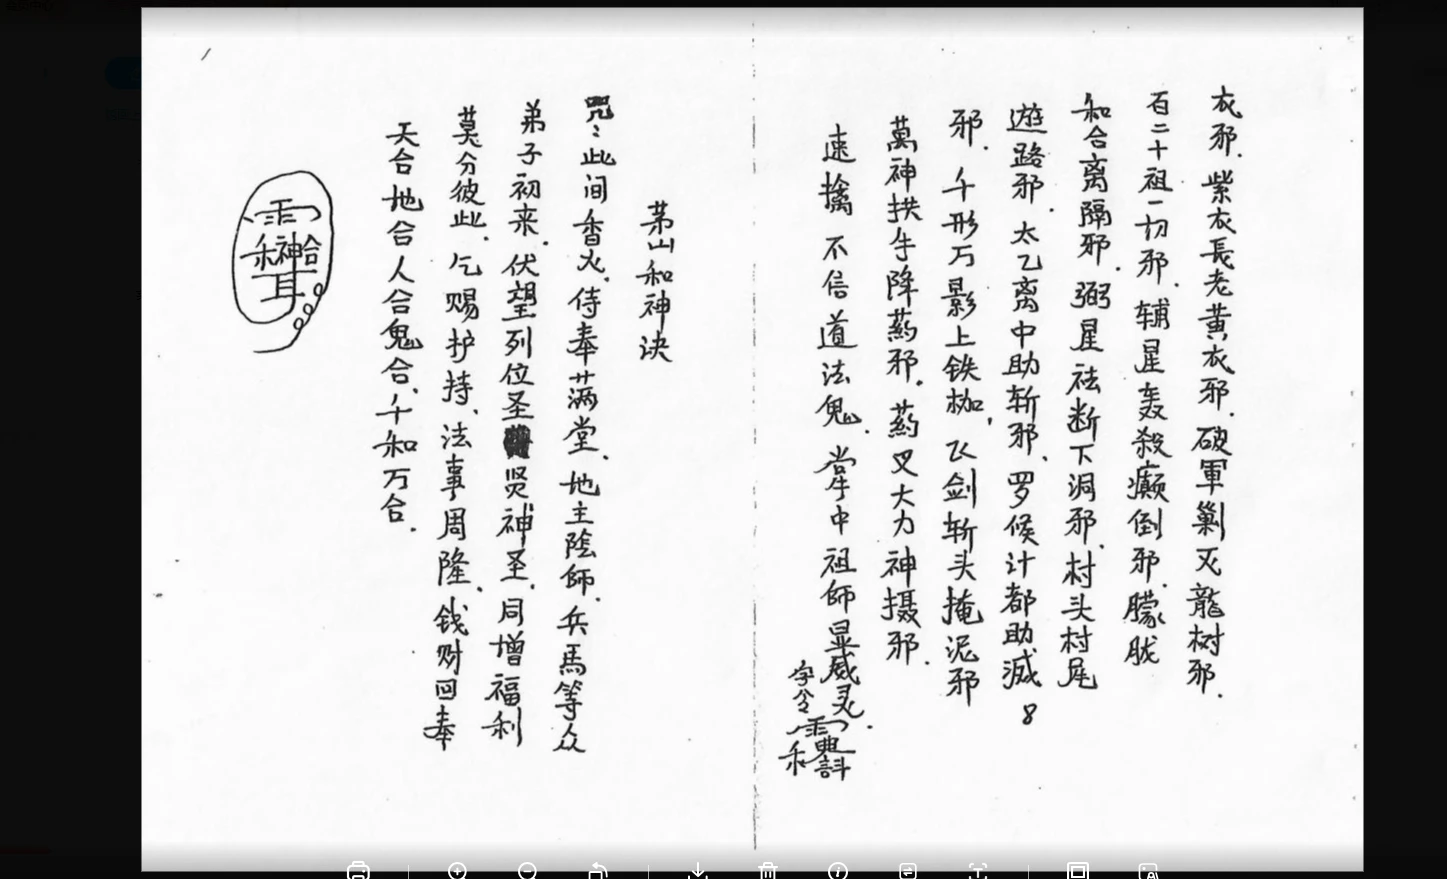 衣邪．紫衣長老黄衣邪．破軍剿灭龍树邪．
百二十祖一切邪．辅星轰殺癫倒邪．朦胧
和合离隔邪．弼星祛断下洞邪．村头村尾
遊路邪．太乙离中助斩邪．罗候计都助滅8
邪．千形万影上铁枷，飞剑斩头掩泥邪
萬神拱手降药邪．药叉大力神摄邪．
速擒不信道法鬼．掌中祖師显威灵．
字令
茅山和神诀
咒：此间香火．侍奉满堂．地主陰師．兵馬等众
弟子初来．伏望列位圣贤神圣．同增福利
莫分彼此．乞赐护持．法事周隆．钱财回奉
天合地合人合鬼合．千和万合．